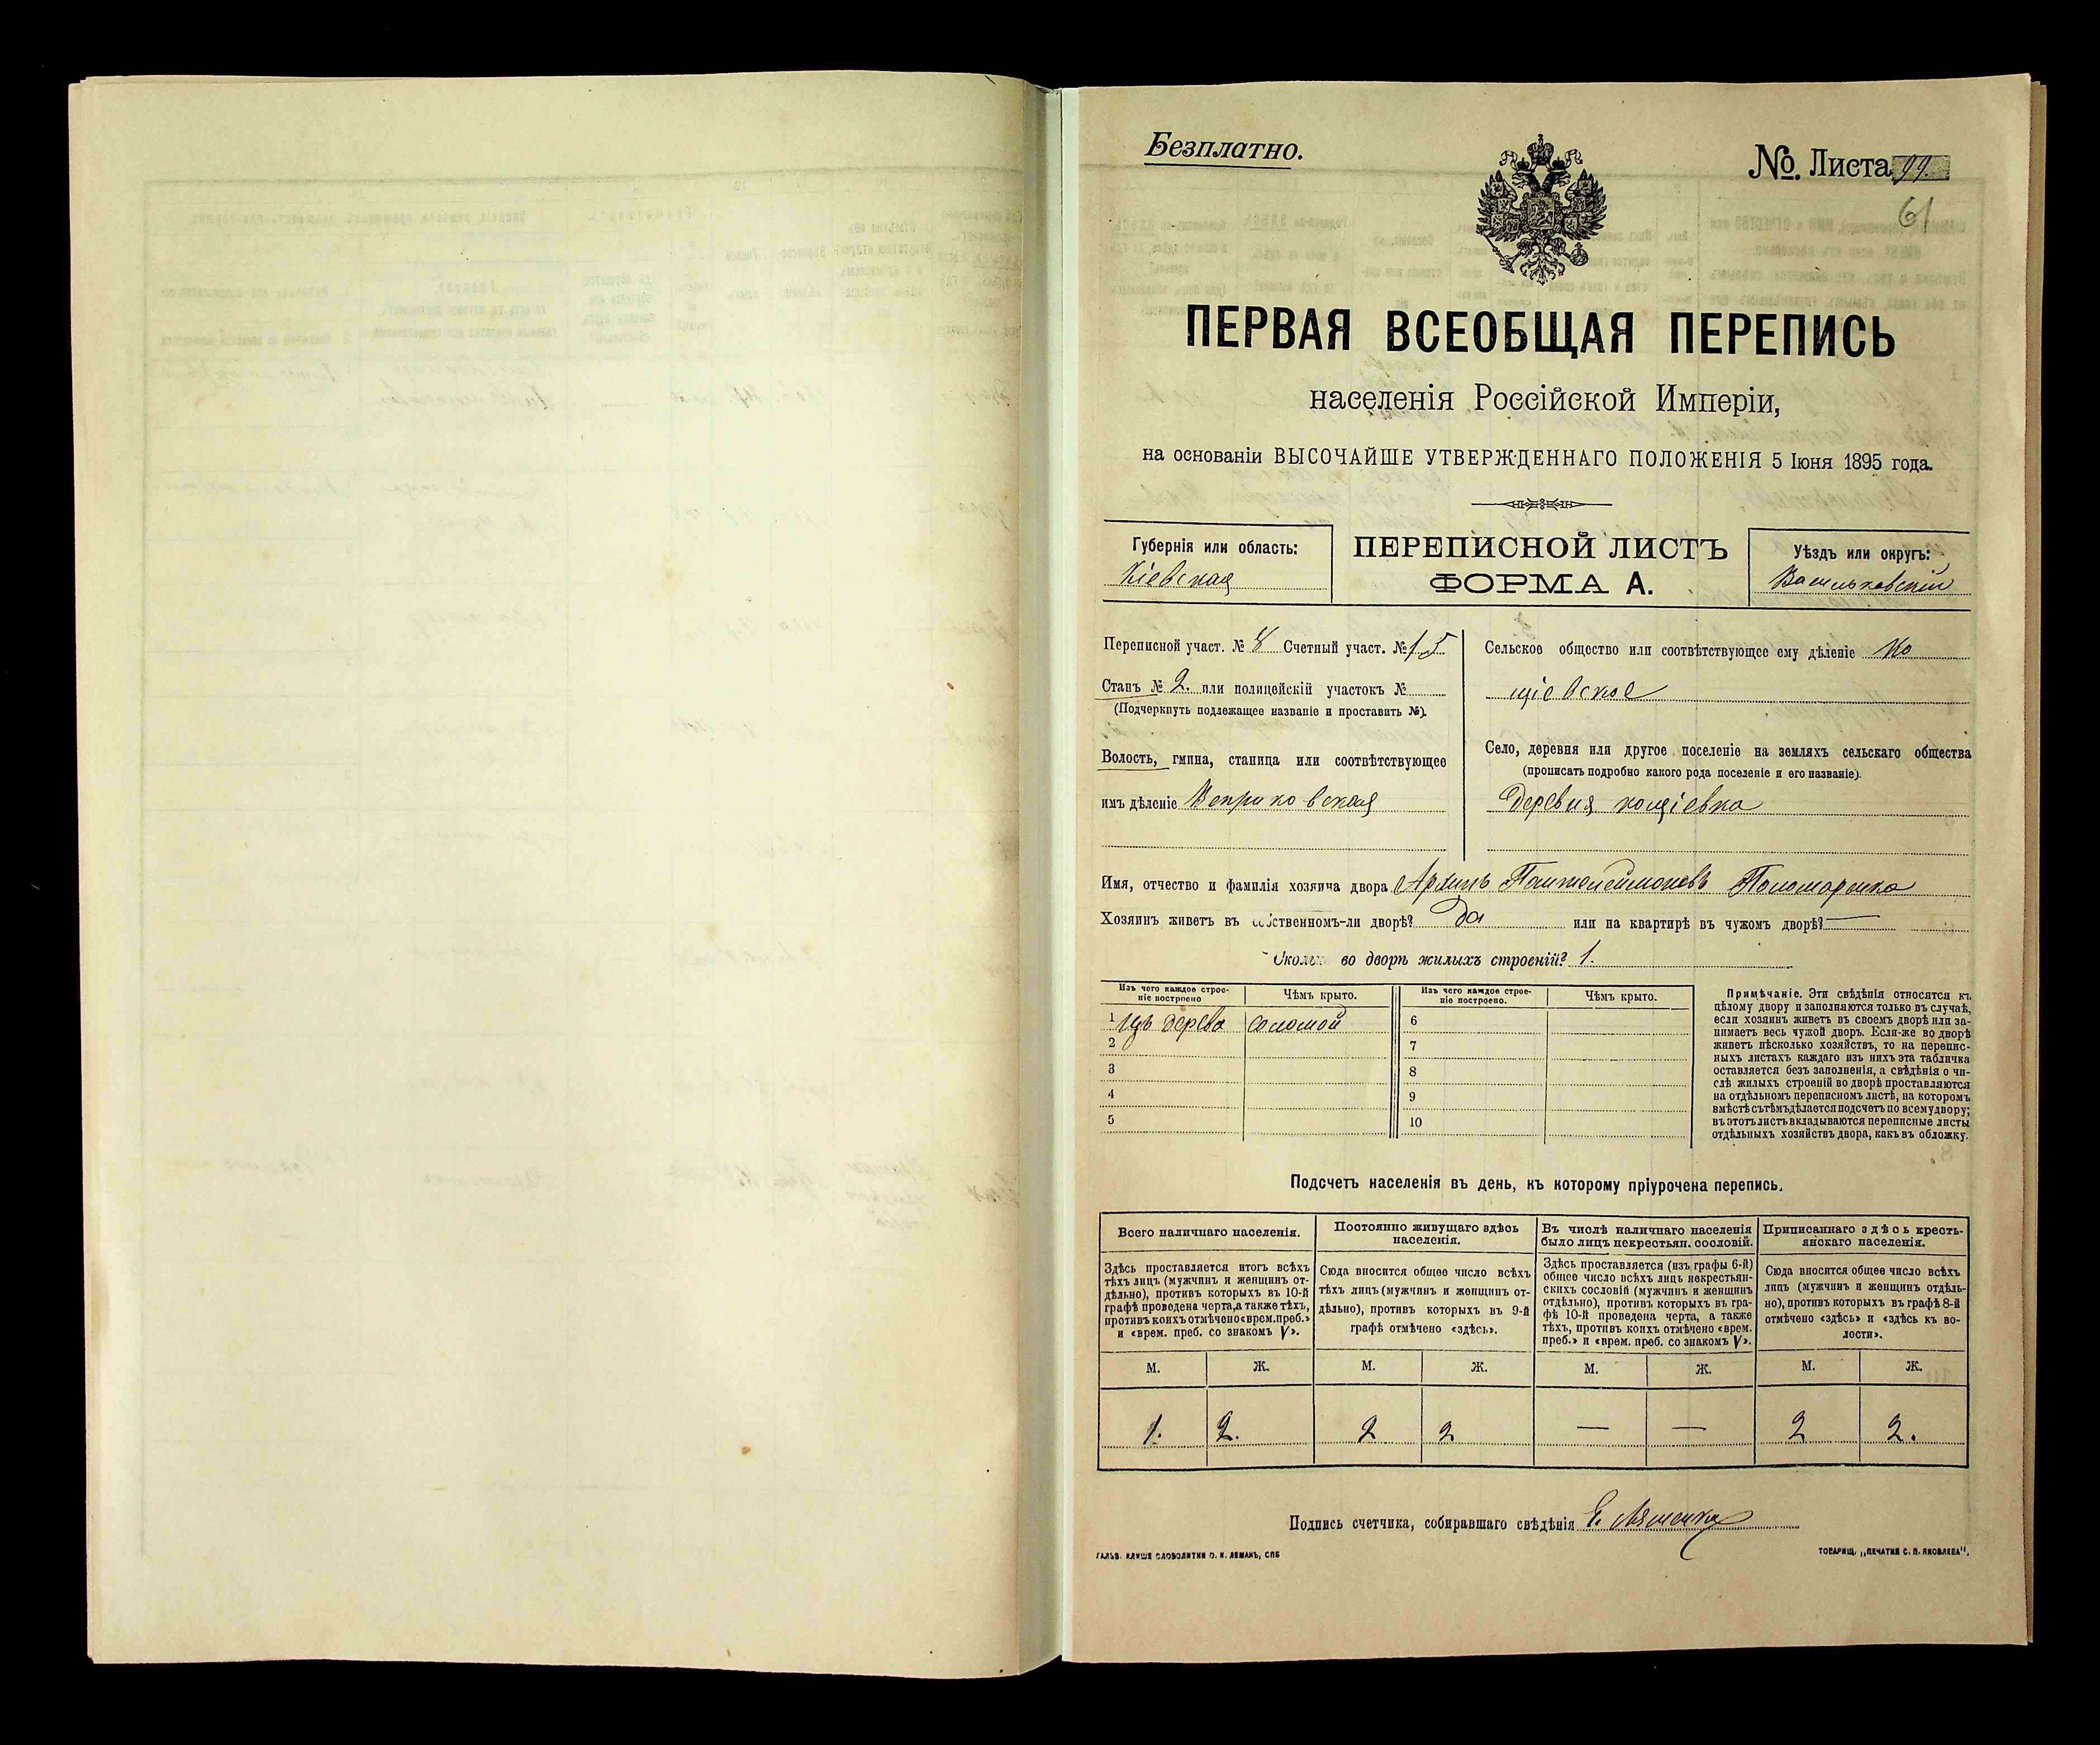 Безплатно.
№. Листа 99.
61
ПЕРВАЯ ВСЕОБЩАЯ ПЕРЕПИСЬ
населенія Россійской Имперіи,
на основаніи ВЫСОЧАЙШЕ УТВЕРЖДЕННАГО ПОЛОЖЕНІЯ 5 Іюня 1895 года.
Губернія или область:
Кіевская
ПЕРЕПИСНОЙ ЛИСТЪ
ФОРМА А.
Уѣздъ или округъ:
Васильковскій
Переписной участ. № 8 Счетный участ. № 15
Станъ № 2. или полицейскій участокъ №
(Подчеркнуть подлежащее названіе и проставить №).
Волость, гмина, станица или соотвѣтствующее
имъ дѣленіе Веприковская
Сельское общество или соотвѣтствующее ему дѣленіе Ко
щіевское
Село, деревня или другое поселеніе на земляхъ сельскаго общества
(прописать подробно какого рода поселеніе и его названіе).
Деревня кощіевка
Имя, отчество и фамилія хозяина двора Архипъ Пантелеймоновъ Пономаренко
Хозяинъ живетъ въ собственномъ-ли дворѣ? Да или на квартирѣ въ чужомъ дворѣ? —
Сколько во дворѣ жилыхъ строеній? 1.
Изъ чего каждое строе-
ніе построено
Чѣмъ крыто.
Изъ чего каждое строе-
ніе построено.
Чѣмъ крыто.
1 изъ дерева соломой
2
3
4
5
6
7
8
9
10
Примѣчаніе. Эти свѣдѣнія относятся къ
цѣлому двору и заполняются только въ случаѣ,
если хозяинъ живетъ въ своемъ дворѣ или за-
нимаетъ весь чужой дворъ. Если-же во дворѣ
живетъ нѣсколько хозяйствъ, то на перепис-
ныхъ листахъ каждаго изъ нихъ эта табличка
оставляется безъ заполненія, а свѣдѣнія о чи-
слѣ жилыхъ строеній во дворѣ проставляются
на отдѣльномъ переписномъ листѣ, на которомъ
вмѣстѣ съ тѣмъ дѣлается подсчетъ по всему двору;
въ этотъ листъ вкладываются переписные листы
отдѣльныхъ хозяйствъ двора, какъ въ обложку.
Подсчетъ населенія въ день, къ которому пріурочена перепись.
Всего наличнаго населенія.
Здѣсь проставляется итогъ всѣхъ
тѣхъ лицъ (мужчинъ и женщинъ от-
дѣльно), противъ которыхъ въ 10-й
графѣ проведена черта, а также тѣхъ,
противъ коихъ отмѣчено «врем. преб.»
и «врем. преб. со знакомъ V».
Постоянно живущаго здѣсь
населенія.
Сюда вносится общее число всѣхъ
тѣхъ лицъ (мужчинъ и женщинъ от-
дѣльно), противъ которыхъ въ 9-й
графѣ отмѣчено «здѣсь».
Въ числѣ наличнаго населенія
было лицъ некрестьян. сословій.
Здѣсь проставляется (изъ графы 6-й)
общее число всѣхъ лицъ некрестьян-
скихъ сословій (мужчинъ и женщинъ
отдѣльно), противъ которыхъ въ гра-
фѣ 10-й проведена черта, а также
тѣхъ, противъ коихъ отмѣчено «врем.
преб.» и «врем. преб. со знакомъ V».
Приписаннаго здѣсь кресть-
янскаго населенія.
Сюда вносится общее число всѣхъ
лицъ (мужчинъ и женщинъ отдѣль-
но), противъ которыхъ въ графѣ 8-й
отмѣчено «здѣсь» и «здѣсь къ во-
лости».
М. Ж. М. Ж. М. Ж. М. Ж.
1. 2. 2 2 — — 2 2.
Подпись счетчика, собиравшаго свѣдѣнія
ГАЛЬВ. КЛИШЕ СЛОВОЛИТНИ О. И. ЛЕМАНЪ, СПБ
ТОВАРИЩ. „ПЕЧАТНЯ С. П. ЯКОВЛЕВА".